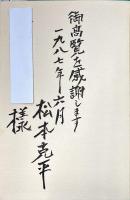 様
御高覧を感謝します
一九八七年六月
松本克平